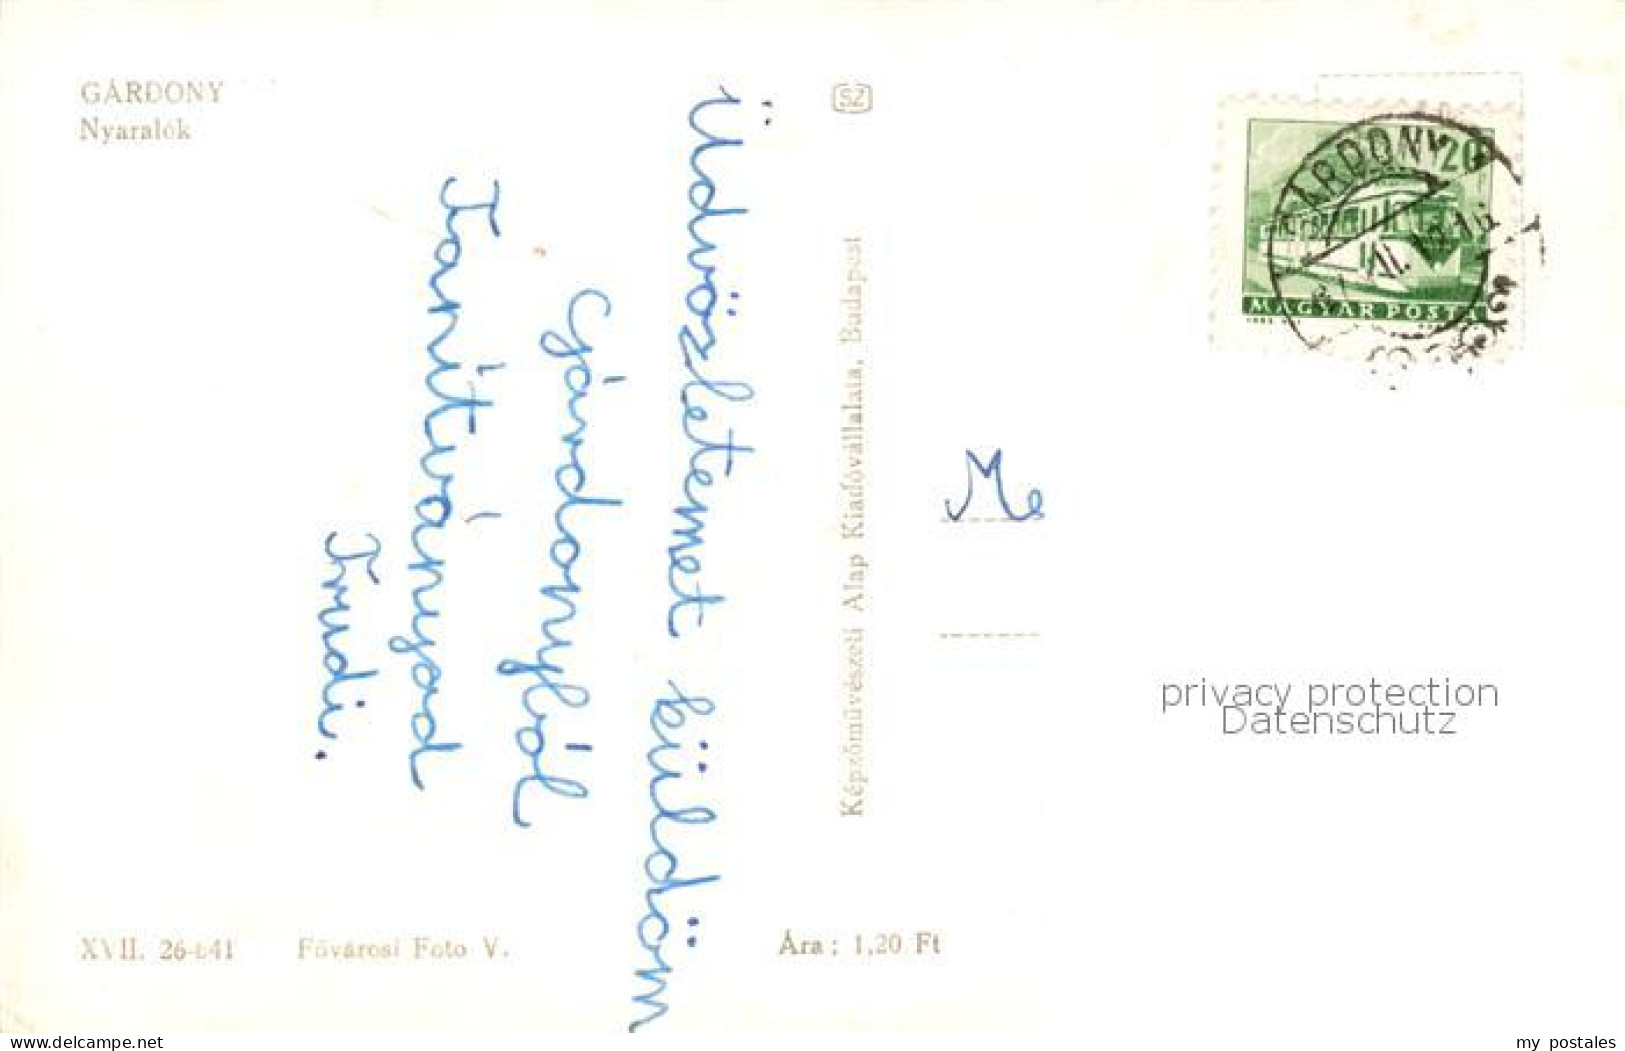 GÁRDONY
Nyaralók
SZ
Üdvözletemet küldöm
Gárdonyból
Tanítványod
Trudi.
Képzőművészeti Alap Kiadóvállalata, Budapest
XVII. 26-641
Fővárosi Foto V.
Ára: 1,20 Ft
20
MAGYAR POSTA
GÁRDONY
Me
privacy protection
Datenschutz
www.delcampe.net
my_postales